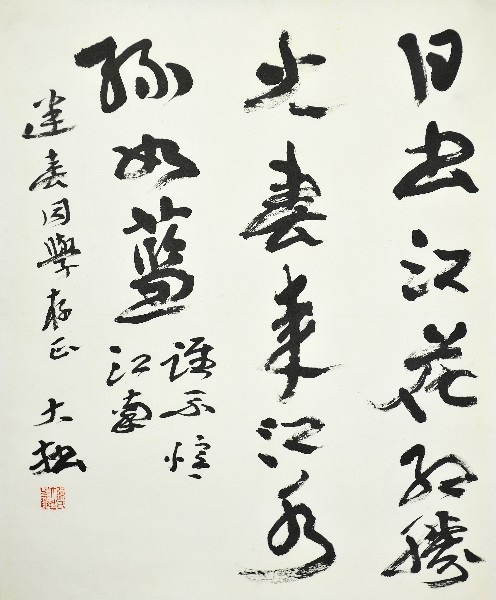 日出江花紅勝
火春來江水
綠如藍
誰不憶
江南
春同學存正 大松